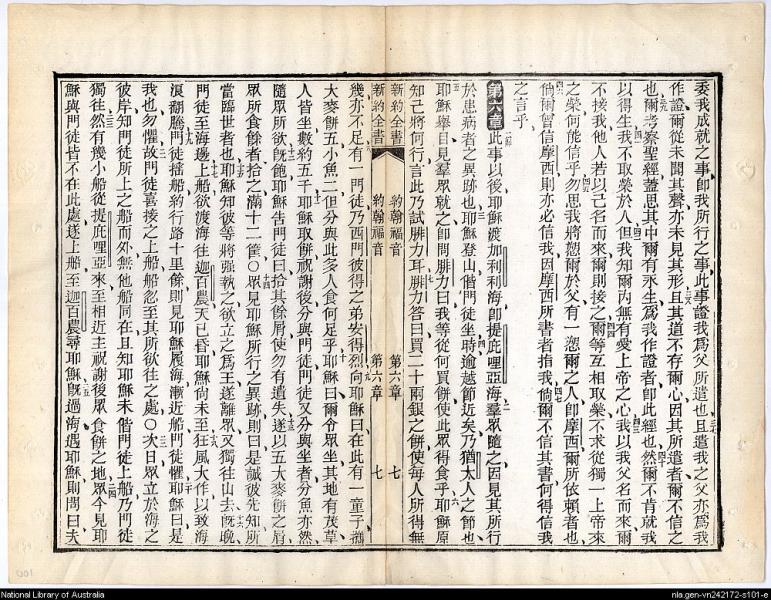 委我成就之事卽我所行之事此事證我爲父所遣也且遣我之父亦爲我
作證爾從未聞其聲亦未見其形且其道不存爾心因其所遣者爾不信之
也爾考察聖經蓋思其中爾有永生爲我作證者卽此經也然爾不肯就我
以得生我不取榮於人但我知爾內無有愛上帝之心我以我父名而來爾
不接我他人若以己名而來爾則接之爾等互相取榮不求從獨一上帝來
之榮何能信乎勿思我將愬爾於父有一愬爾之人卽摩西爾所依賴者也
倘爾曾信摩西則亦必信我因摩西所書者指我倘爾不信其書何得信我
之言乎
第六章此事以後耶穌渡加利利海卽提庇哩亞海羣眾隨之因見其所行
於患病者之異跡也耶穌登山偕門徒坐時逾越節近矣乃猶太人之節也
耶穌舉目見羣眾就之卽問腓力曰我等從何買餅使此眾得食乎耶穌原
知己將何行言此乃試腓力耳腓力答曰買二十兩銀之餅使每人所得無
新約全書 約翰福音 第六章 七
新約全書 約翰福音 第六章 七
幾亦不足有一門徒乃西門彼得之弟安得烈向耶穌曰在此有一童子攜
大麥餅五小魚二但分與此多人食何足乎耶穌曰爾令眾坐其地有茂草
人皆坐數約五千耶穌取餅祝謝後分與門徒門徒又分與坐者分魚亦然
隨眾所欲旣飽耶穌告門徒曰拾其餘屑使勿有遺失遂以五大麥餅之屑
眾所食餘者拾之滿十二筐〇眾見耶穌所行之異跡則曰是誠彼先知所
當臨世者也耶穌知彼等將强執之欲立之爲王遂離眾又獨往山去旣晚
門徒至海邊上船欲渡海往迦百農天已昏耶穌尙未至狂風大作以致海
浪翻騰門徒搖船約行路十里餘則見耶穌履海漸近船門徒懼耶穌曰是
我也勿懼故門徒喜接之上船船忽至其所欲往之處〇次日眾立於海之
彼岸知門徒所上之船而外無他船同在且知耶穌未偕門徒上船乃門徒
獨往然有幾小船從提庇哩亞來至相近主祝謝後眾食餅之地眾今見耶
穌與門徒皆不在此處遂上船至迦百農尋耶穌旣過海遇耶穌則問曰夫
National Library of Australia
nla.gen-vn242172-s101-e